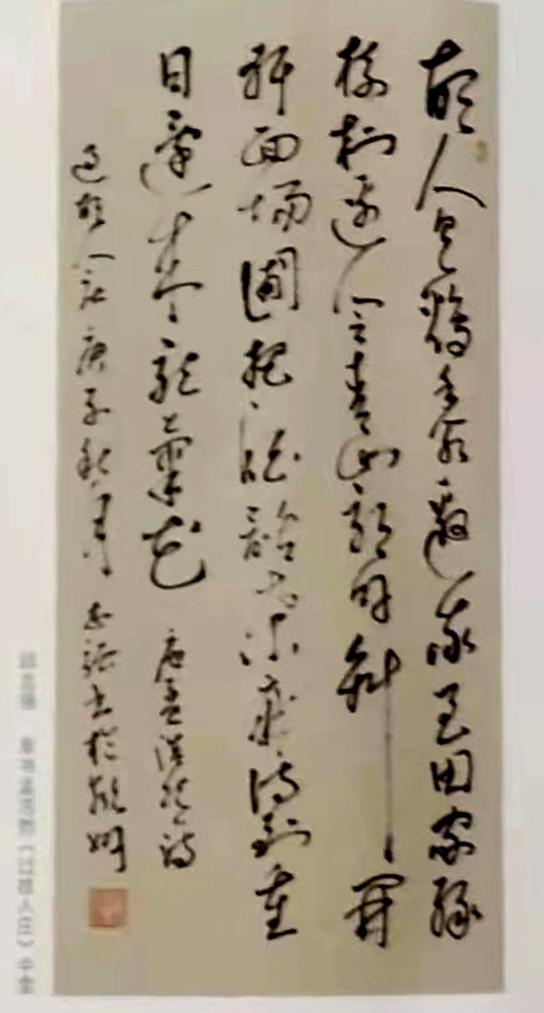 故人具鸡黍邀我至田家绿
树村边合青山郭外斜开
轩面场圃把酒话桑麻待到重
阳日还来就菊花 唐孟浩然诗
过故人庄 庚子秋月 书于
草书孟浩然《过故人庄》中堂